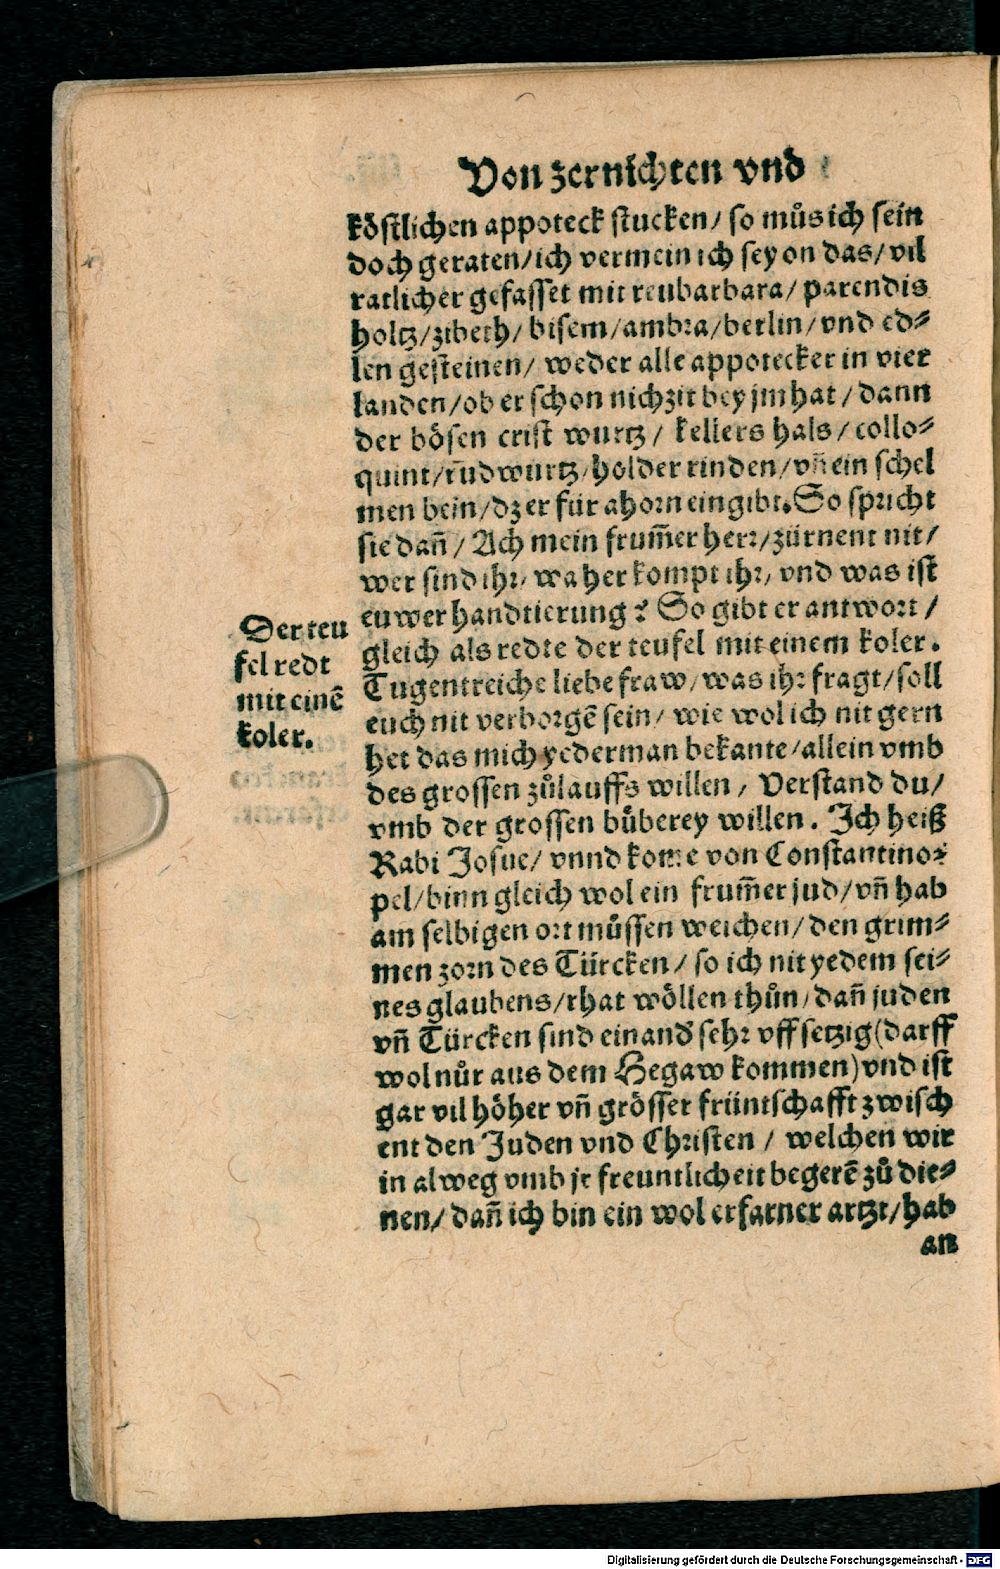 Von zernichten vnd
köstlichen appoteck stucken/ so můs ich sein
doch geraten/ich vermein ich sey on das/vil
ratlicher gefasset mit reubarbara/ parendis
holtz/zibeth/ bisem/ambra/berlin/vnd ed⸗
len gesteinen/ weder alle appotecker in vier
landen/ob er schon nichzit bey jm hat/dann
der bösen crist wurtz/ kellers hals/collo⸗
quint/růdwurtz/holder rinden/vñ ein schel
men bein/dz er für ahorn eingibt. So spricht
sie dañ/ Ach mein frum̃er herr/zürnent nit/
wer sind ihr/ wa her kompt ihr/ vnd was ist
euwer handtierung? So gibt er antwort/
gleich als redte der teufel mit einem koler.
Tugentreiche liebe fraw/was ihr fragt/soll
euch nit verborgẽ sein/ wie wol ich nit gern
het das mich yederman bekante/allein vmb
des grossen zůlauffs willen/ Verstand du/
vmb der grossen bůberey willen. Ich heiß
Rabi Josue/ vnnd kome von Constantino⸗
pel/binn gleich wol ein frum̃er jud/vñ hab
am selbigen ort můssen weichen/den grim⸗
men zorn des Türcken/ so ich nit yedem sei⸗
nes glaubens/rhat wöllen thůn/dañ juden
vñ Türcken sind einand̉ sehr vffsetzig(darff
wol nůr aus dem Hegaw kommen)vnd ist
gar vil höher vñ grösser früntschafft zwisch
ent den Juden vnd Christen/ welchen wir
in alweg vmb jr freuntlicheit begerẽ zů die⸗
nen/ dañ ich bin ein wol erfarner artzt/hab
an
Der teu
fel redt
mit einẽ
koler.
Digitalisierung gefördert durch die Deutsche Forschungsgemeinschaft - DFG